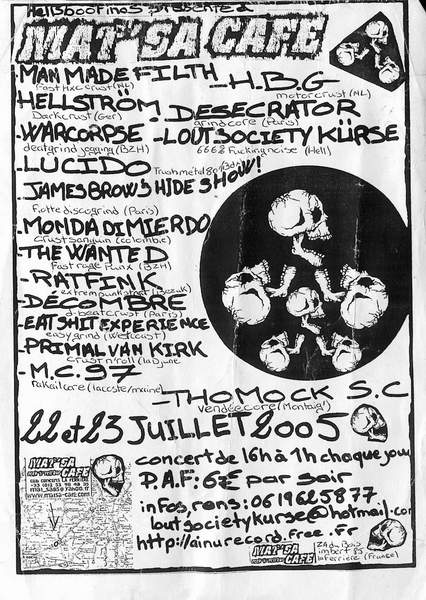 Hellsbootinas presented
MAT'SA CAFE
-MAN MADE FILTH
Fast HxC crust (NL)
-H.B.G
motorcrust (NL)
-HELLSTRÖM
Darkcrust (Ger)
-DESECRATOR
grindcore (Paris)
-WARCORPSE
deatgrind jogging (BZH)
-LOUT SOCIETY KÜRSE
6668 Fucking noise (Hell)
-LUCIDO
-JAMES BROW'S HIDE SHOW!
Flotte discogrind (Paris)
-MONDA DI MIERDO
Crust sanguin (colombie)
-THE WANTED
Fast rage Punx (BZH)
-RATFINK
-DÉCOMBRE
d-beatcrust (Paris)
-EAT SHIT EXPERIENCE
easy grind (Westcoast)
-PRIMAL VAN KIRK
crust n'roll
-M.C. 97
rakailcore (lacoste/maine)
-THOMOCK S.C
Vendéecore (Montaig')
22 et 23 JUILLET 2005
concert de 16h à 1h chaque jour
P.A.F: 6€ par soir
infos, rens: 0619625877
loutsocietykurse@hotmail.com
http://ainurecord.free.fr
MAT'SA
CAFE
www.matsa-cafe.com
MAT'SA
CAFE
ZA du Bois
imbert 85
la ferrière (France)